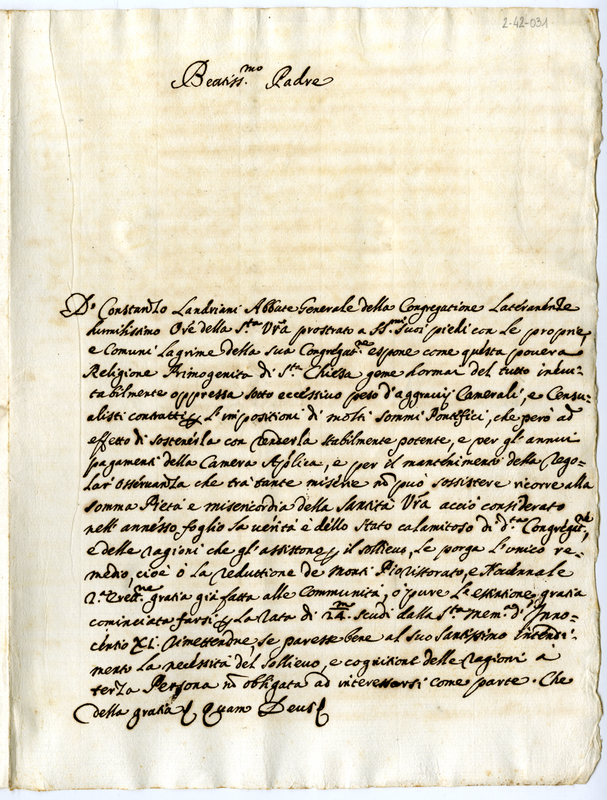 2-42-031
Beatiss.mo Padre
D. Constanzo Landriani Abbate Generale della Congregatione Lateranense
humilissimo Ore della S.ta Vra prostrato a SS.mi Suoi piedi con le proprie,
e Comuni lagrime della sua Congregat.ne espone come questa povera
Religione Primogenita di S.ta Chiesa geme hormai del tutto inevi-
tabilmente oppressa sotto eccessivo peso d'aggravij Camerali, e Censu-
alisti contratti per l'impositioni di molti Sommi Pontefici, che però ad
effetto di sostenerla con renderla stabilmente potente, e per gl'annui
pagamenti della Camera Aplica, e per il mantenimento della rego-
lar Osservanza che trà tante miserie nò può sossistere ricorre alla
somma Pietà e misericordia della Santità Vra acciò considerato
nell'annesso foglio la verità e dello Stato calamitoso di d.ta Congregat.ne,
e delle ragioni che gl'assistono per il sollievo, le porga l'unico re-
medio, cioè ò la reduttione de Monti e Novennale
gratia già fatta alle Communità, o pure l'estintione gratia
cominciata farsi per la rata di 24 m scudi dalla S.ta Mem.a d'Inno-
centio XI. rimettendne, se paresse bene al suo Santissimo Intendi-
mento la necessità del sollievo, e cognitione delle ragioni à
terza Persona nò obligata ad interessarsi come parte. Che
della gratia Quam Deus